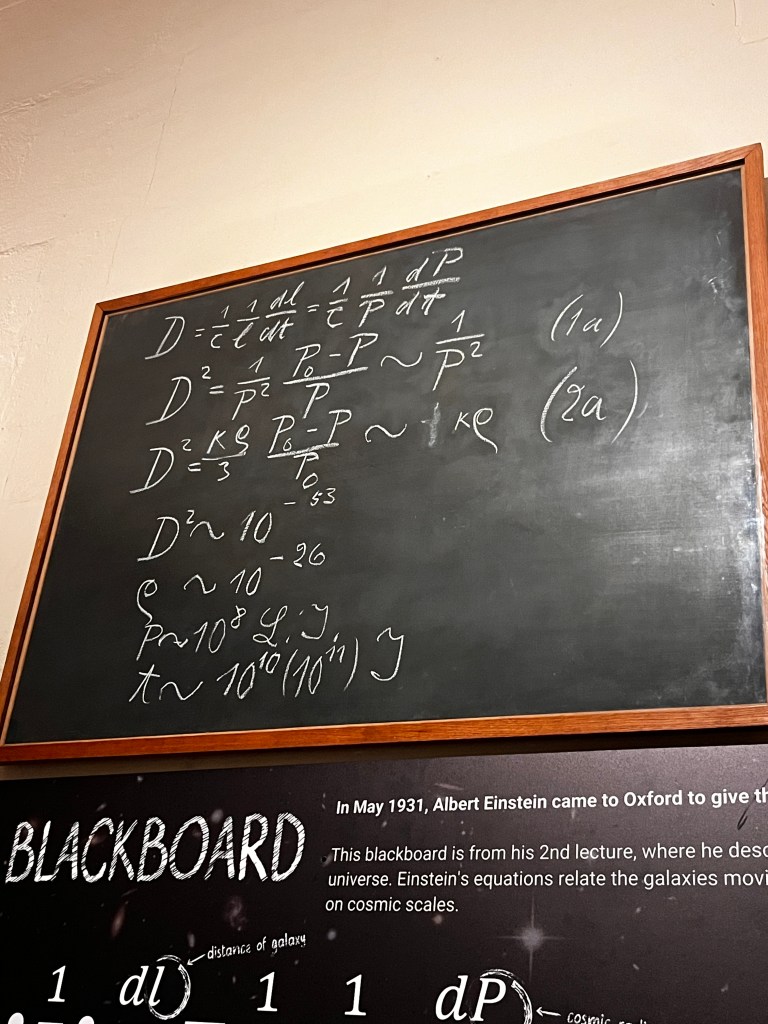 D = 1/c 1/l dl/dt = 1/c 1/P dP/dt
D² = 1/P² (P₀-P)/P ~ 1/P² (1a)
D² = κρ/3 (P₀-P)/P₀ ~ κρ (2a)
D² ~ 10⁻⁵³
ρ ~ 10⁻²⁶
P ~ 10⁸ L.J.
t ~ 10¹⁰(10¹¹) J
BLACKBOARD
In May 1931, Albert Einstein came to Oxford to give th
This blackboard is from his 2nd lecture, where he desc
universe. Einstein's equations relate the galaxies movi
on cosmic scales.
distance of galaxy
1 dl 1 1 dP
cosmic